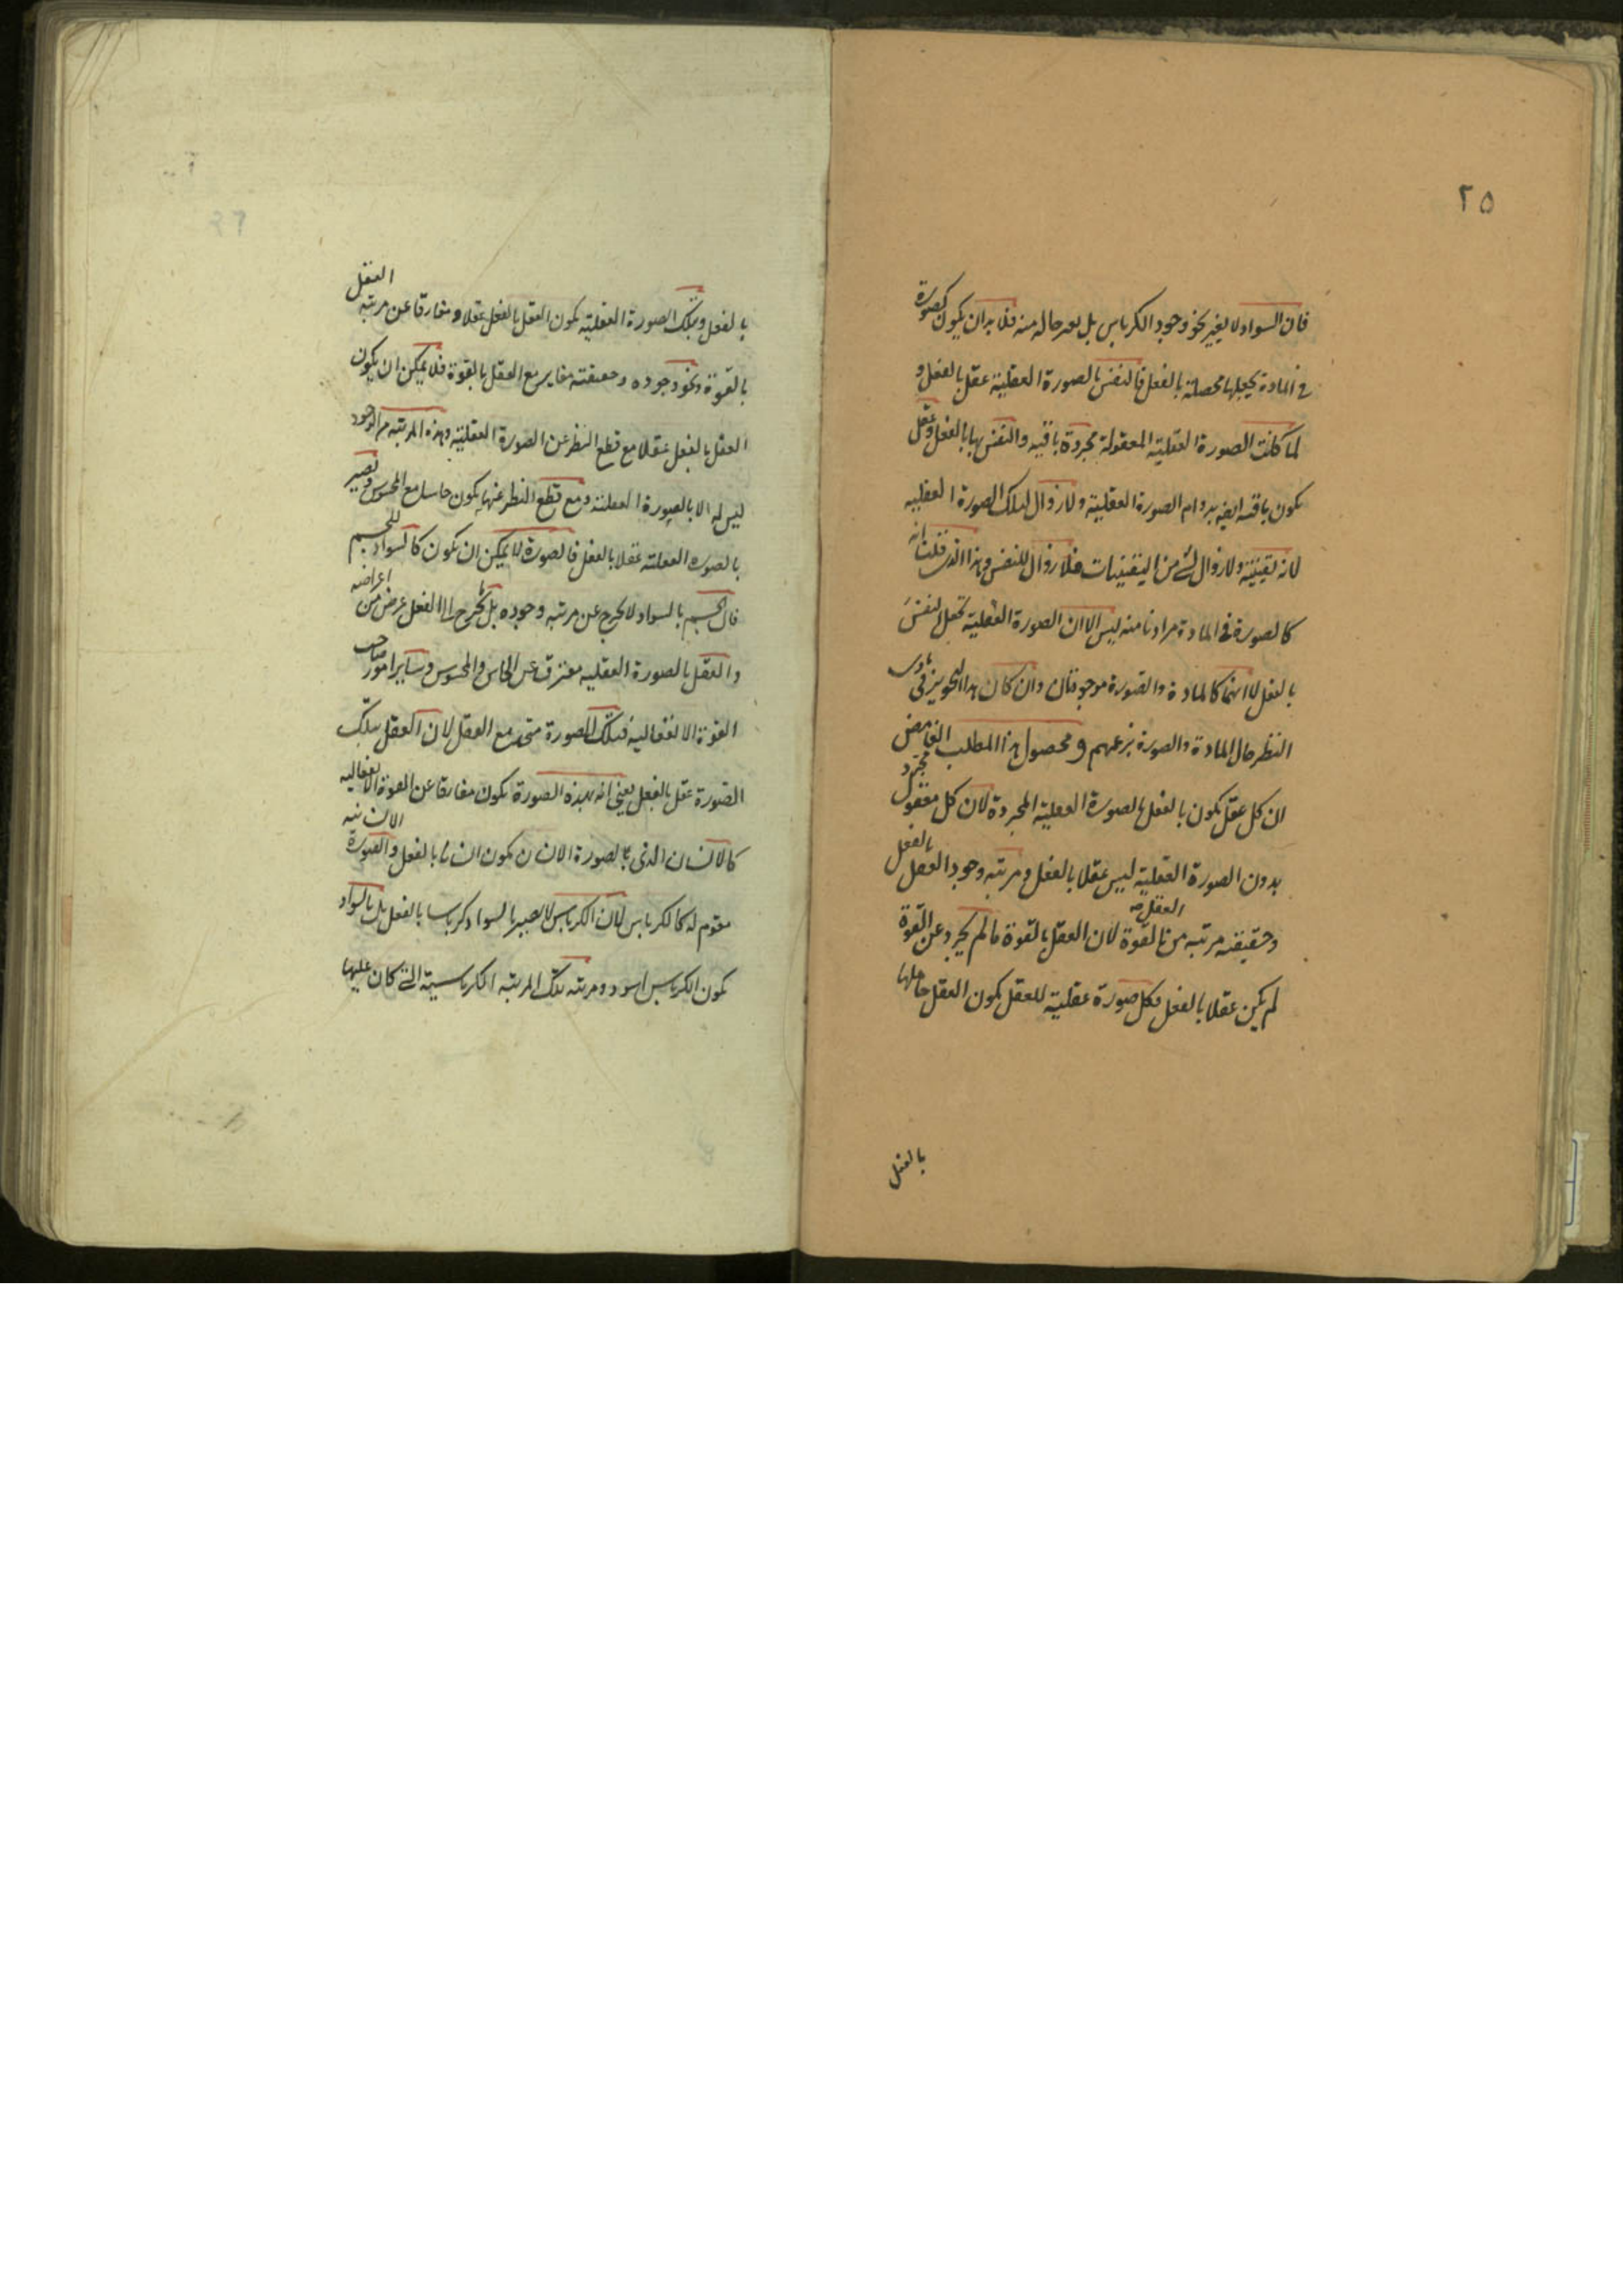 ٢٥
فان السواد لا يغير نحو وجود الكرباس بل يغير حاله منه فلا بد ان يكون كصورة
في المادة يجعلها محصلة بالفعل فالنفس بالصورة العقلية عقل بالفعل و
لما كانت الصورة العقلية المعقولة مجردة باقية والنفس بها بالفعل وعقل
يكون باقية ايضه بدوام الصورة العقلية ولا زوال لتلك الصورة العقلية
لانه يقينية ولا زوال لشئ من اليقينيات فلا زوال للنفس وهذا الذي قلت انه
كالصورة في المادة مرادنا منه ليس الا ان الصورة العقلية تجعل النفس
بالفعل لا انهما كالمادة والصورة موجودتان وان كان هذا التجويز في بادى
النظر حال المادة والصورة بزعمهم ومحصول هذا المطلب الغامض
ان كل عقل يكون بالفعل بالصورة العقلية المجردة لان كل معقول مجرد
بدون الصورة العقلية ليس عقلا بالفعل ومرتبه وجود العقل بالفعل
وحقيقته مرتبه من العقل بالقوة لان العقل بالقوة ما لم يجرد عن القوة
لم يكن عقلا بالفعل فكل صورة عقلية للعقل يكون العقل حاملها
بالفعل
بالفعل وبتلك الصورة العقلية يكون العقل بالفعل عقلا ومفارقا عن مرتبه العقل
بالقوة ونحو وجوده وحقيقته مغاير مع العقل بالقوة فلا يمكن ان يكون
العقل بالفعل عقلا مع قطع النظر عن الصورة العقلية وهذه المرتبه من الوجود
ليس له الا بالصورة العقلية ومع قطع النظر عنها يكون حاسا مع المحسوس ويصير
بالصورة العقلية عقلا بالفعل فالصورة لا يمكن ان يكون كالسواد للجسم
فان الجسم بالسواد لا يخرج عن مرتبه وجوده بل يخرج الى الفعل عرض من اعراضه
والعقل بالصورة العقلية مفترق عن الحاس والمحسوس وساير امور صاحب
القوة الانفعاليه فتلك الصورة متحد مع العقل لان العقل بتلك
الصورة عقل بالفعل يعني انه بهذه الصورة يكون مفارقا عن القوة الانفعاليه
كالانسان الذي بالصورة الانسانية يكون انسانا بالفعل والصورة
مقوم له كالكرباس لان الكرباس لا يصير بالسواد كرباسا بالفعل بل بالسواد
يكون الكرباس اسود ومرتبه تلك المرتبه الكرباسية التي كان عليها